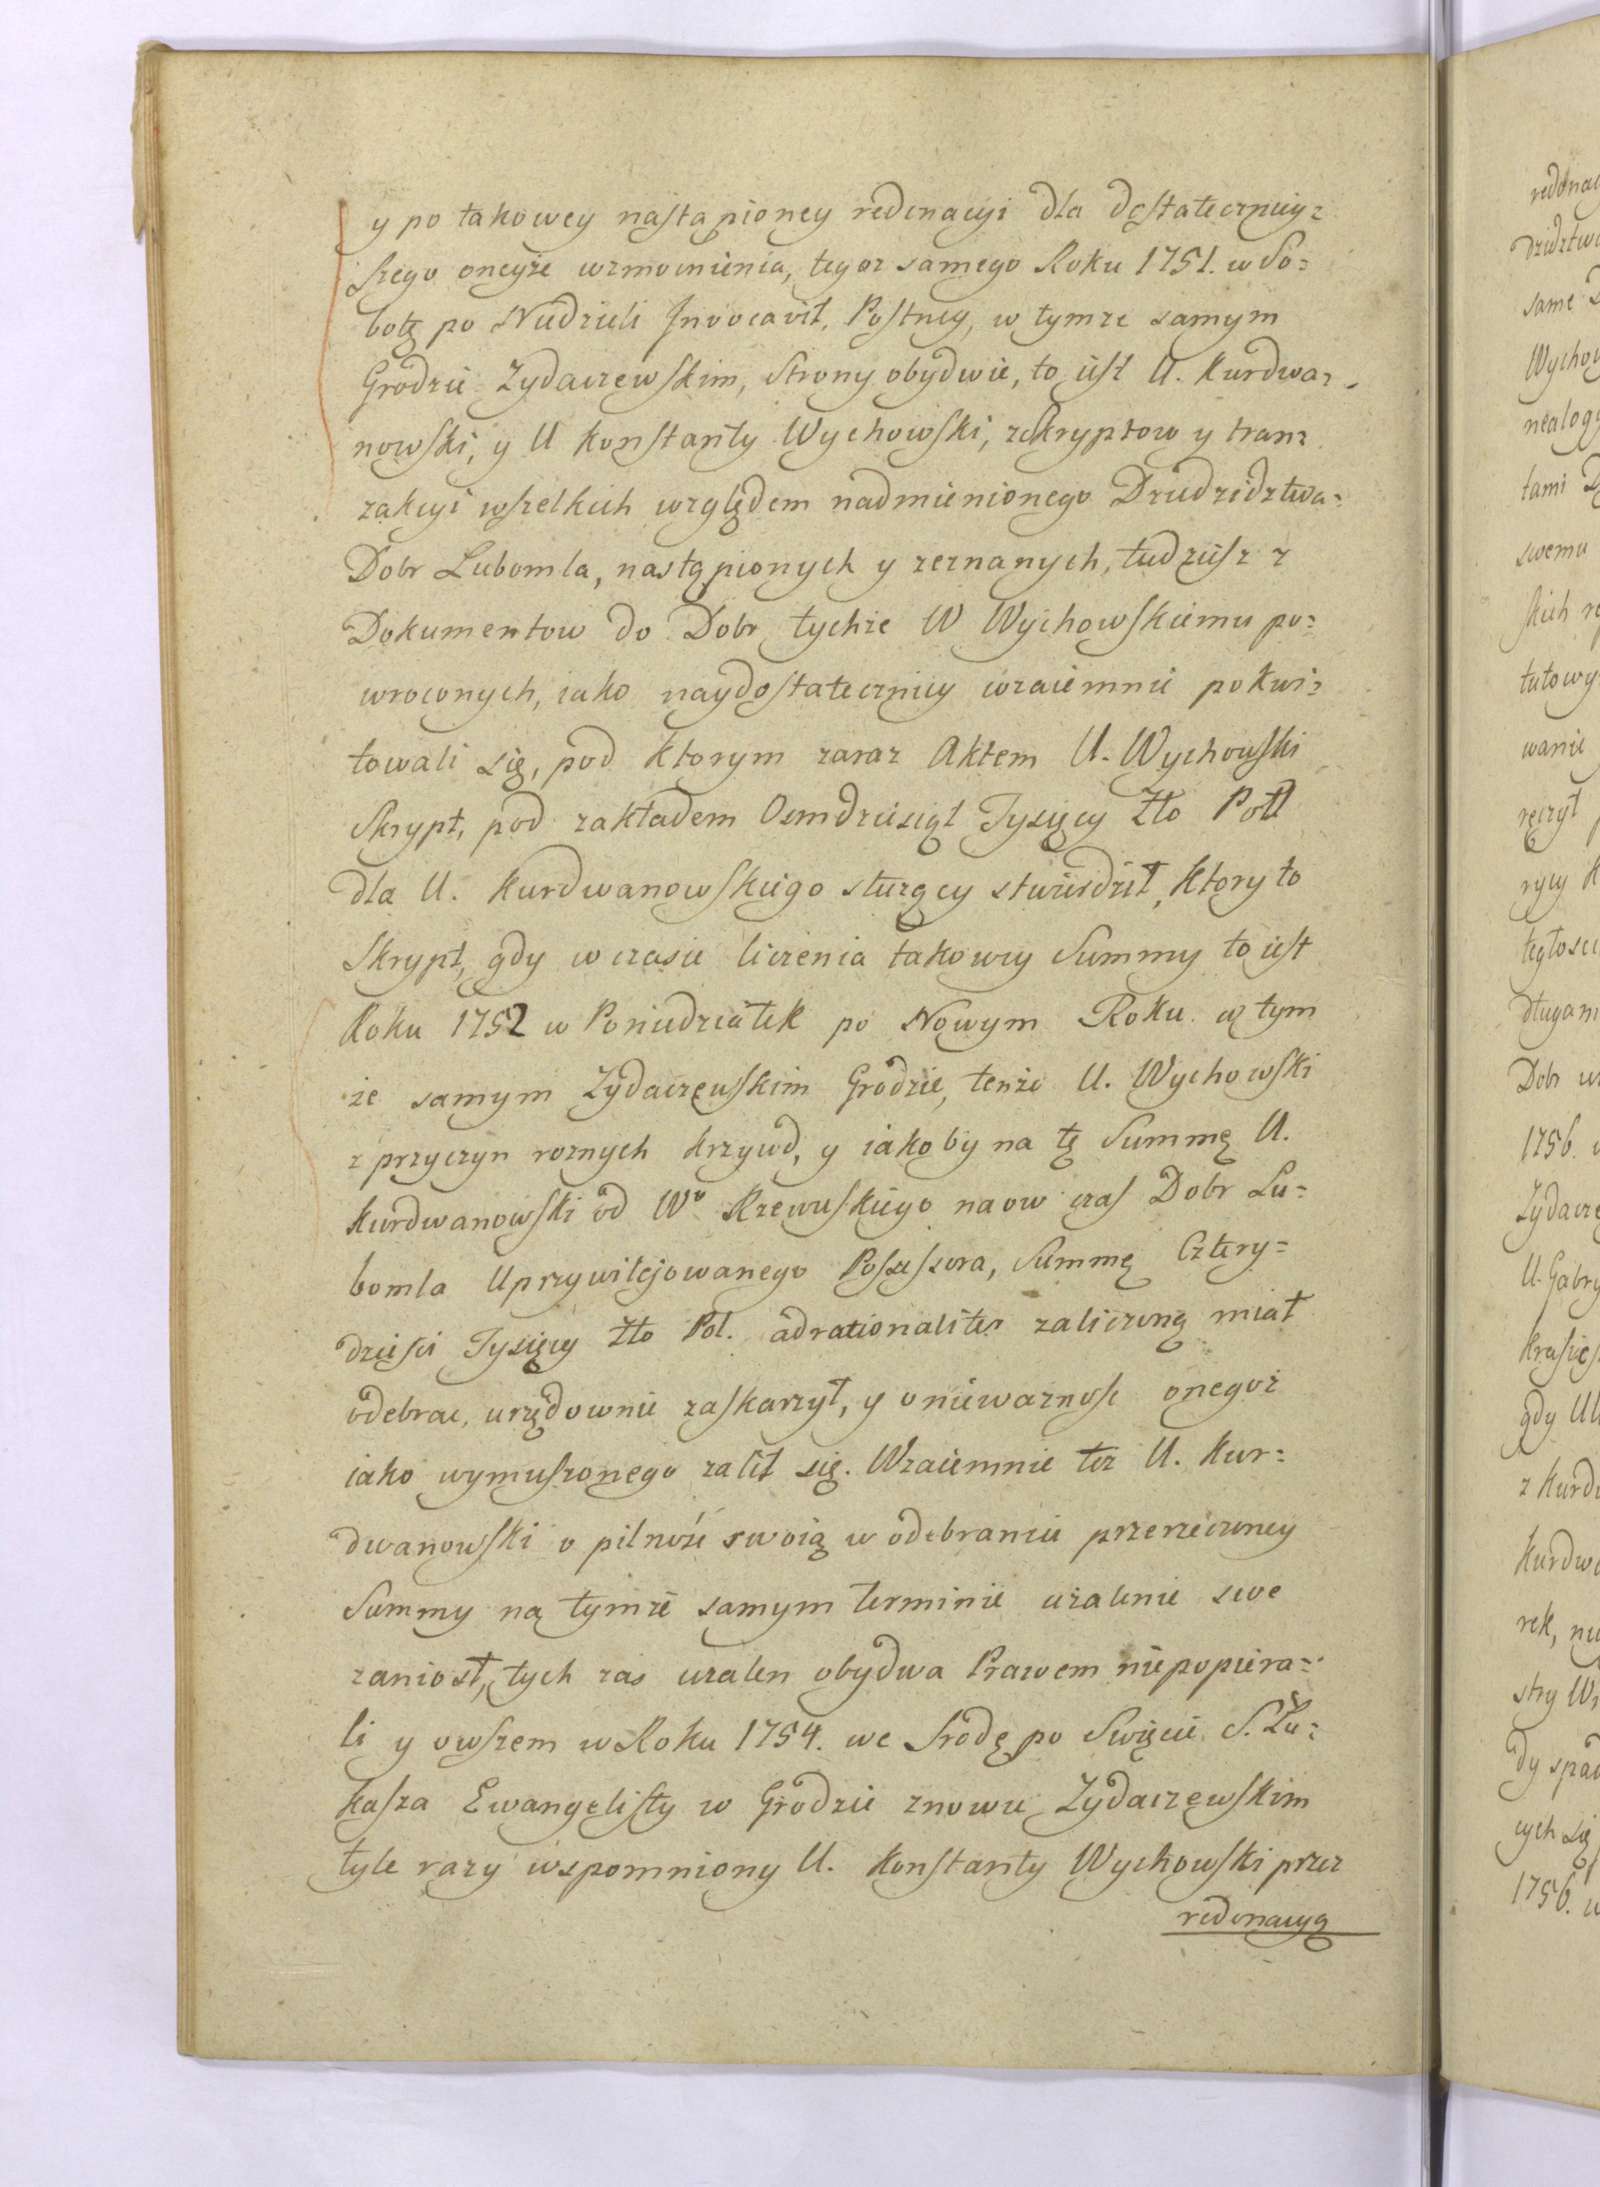 y po takowey nastąpioney redonacyi dla dostateczniey=
szego oneyże wzmocnienia, tegoz samego Roku 1751. w So=
botę po Niedzieli Invocavit, Postney, w tymze samym
Grodzie Zydaczewskim, Strony obydwie, to iest U. Kurdwa=
nowski, y U Konstanty Wychowski, z Skryptow y tran=
zakcyi wszelkich względem nadmienionego Dziedzidztwa=
Dobr Lubomla, nastąpionych y zeznanych, tudziesz z
Dokumentow do Dobr tychze W Wychowskiemu po=
wroconych, iako naydostateczniey wzaiemnie pokwi=
towali się, pod ktorym zaraz Aktem U. Wychowski
Skrypt, pod zakładem Osmdziesiąt Tysięcy Zło Pol
dla U. Kurdwanowskiego służący stwierdził, Ktory to
Skrypt, gdy w czasie liczenia takowey Summy to iest
Roku 1752 w Poniedziałek po Nowym Roku w tym
że samym Zydaczewskim Grodzie, tenże U. Wychowski
z przyczyn roznych krzywd, y iakoby na tę Summę U.
Kurdwanowski od Wo Rzewuskiego na ow czas Dobr Lu=
bomla Uprzywilejowanego Possessora, Summę Cztery=
dzieści Tysięcy Zło Pol. adrationaliter zaliczoną miał
odebrac, urzędownie zaskarzył, y o nieważnosc onegoż
iako wymuszonego zalił się. Wzaiemnie też U. Kur=
dwanowski o pilność swoią w odebraniu przerzeczoney
Summy na tymże samym terminie użalenie swe
zaniosł, tych zas uzalen obydwa Prawem niepopiera=
li y owszem w Roku 1754. we Srodę po Swięcie S. Łu=
kasza Ewangelisty w Grodzie znowu Zydaczewskim
tyle razy wspomniony U. Konstanty Wychowski przez
redonacyą